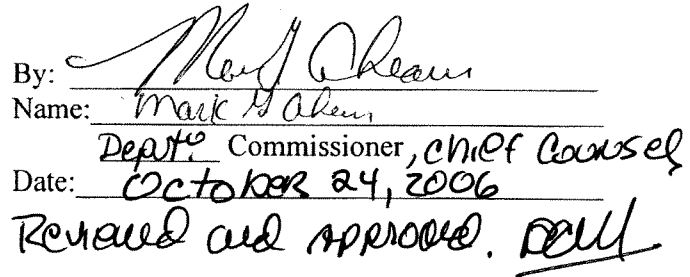 By:
Name: Mark G Ahearn
Deputy Commissioner, Chief Counsel
Date: October 24, 2006
Reviewed and Approved.